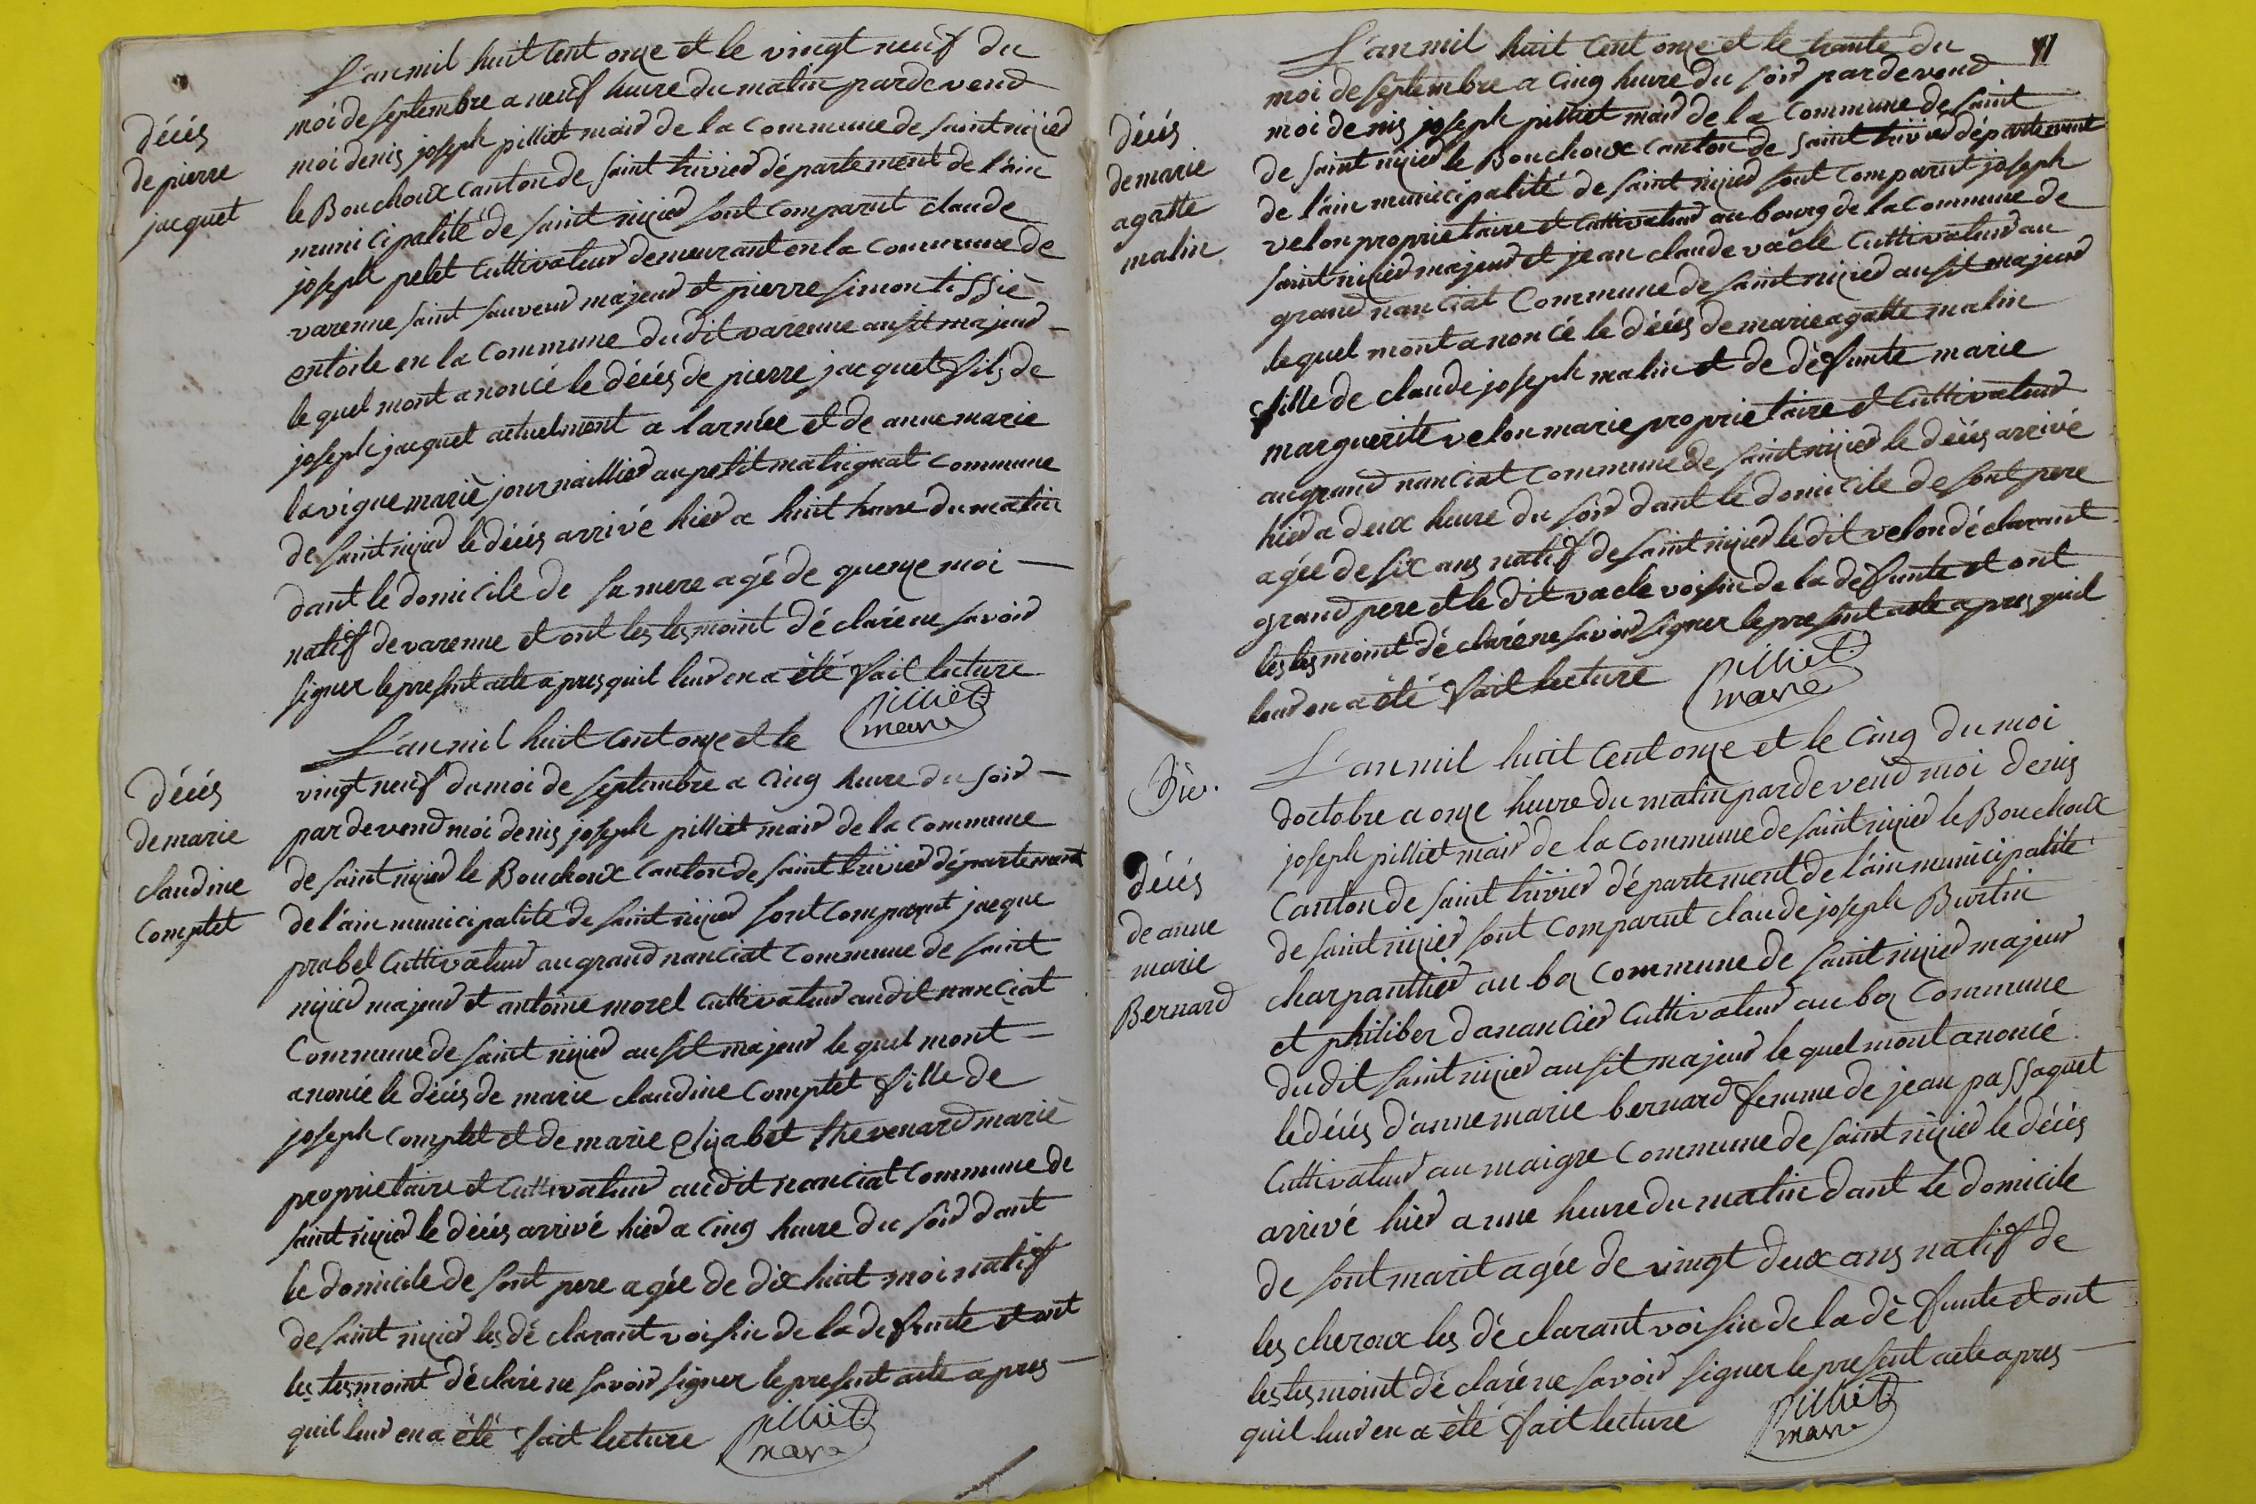 décés
de pierre
jacquet
L'an mil huit cent onze et le vingt neuf du
moi de septembre a neuf heure du matin pardevend
moi denis joseph pilliet maire de la commune de saint nizied
le Bouchoux canton de saint trivied département de l'ain
municipalité de saint nizied sont comparut claude
joseph pelet cultivateur demeurant en la commune de
varenne saint sauveur majeur et pierre simon tissie
entoile en la commune dudit varenne ausit majeur
le quel mont anoncé le décés de pierre jacquet fils de
joseph jacquet actuelment a larmée et de anne marie
lavigne marié journaillier au petit matignat commune
de saint nizied le décés arrivé hied a huit heure du matin
dant le domicile de sa mere agé de quenze moi
natif de varenne et ont les tesmoint déclaré ne savoir
signer le present acte apres quil leur en a été fait lecture
Pilliet
maire
décés
de marie
claudine
comptet
L'an mil huit cent onze et le
vingt neuf du moi de septembre a cinq heure du soir
pardevend moi denis joseph pilliet maire de la commune
de saint nizied le Bouchoux canton de saint trivied département
de l'ain municipalité de saint nizied sont comparut jacque
prabel cultivateur au grand nanciat commune de saint
nizied majeur et antoine morel cultivateur audit nanciat
commune de saint nizied ausit majeur le quel mont
anoncé le décés de marie claudine comptet fille de
joseph comptet et de marie elizabet thevenard marié
proprietaire et cultivateur audit nanciat commune de
saint nizied le décés arrivé hied a cinq heure du soir dant
le domicile de sont pere agée de dix huit moi natif
de saint nizied les déclarant voisin de la defunte et ont
les tesmoint déclaré ne savoir signer le present acte apres
quil leur en a été fait lecture
Pilliet
maire
décés
de marie
agatte
malin
L'an mil huit cent onze et le trante du
moi de septembre a cinq heure du soir pardevend
moi denis joseph pilliet maire de la commune de saint
de saint nizied le Bouchoux canton de saint trivied département
de l'ain municipalité de saint nizied sont comparut joseph
velon proprietaire et cultivateur au bourg de la commune de
saint nizied majeur et jean claude vacle cultivateur au
grand nanciat commune de saint nizied ausit majeur
le quel mont anoncé le décés de marie agatte malin
fille de claude joseph malin et de défunte marie
marguerite velon marie proprietaire et cultivateur
au grand nanciat commune de saint nizied le décés arrivé
hied a deux heure du soir dant le domicile de sont pere
agée de six ans natif de saint nizied le dit velon déclarant
grand pere et le dit vacle voisin de la défunte et ont
les tesmoint déclaré ne savoir signer le present acte apres quil
leur en a été fait lecture
Pilliet
maire
décés
de anne
marie
Bernard
L'an mil huit cent onze et le cinq du moi
doctobre a onze heure du matin pardevend moi denis
joseph pilliet maire de la commune de saint nizied le Bouchoux
canton de saint trivied département de l'ain municipalité
de saint nizied sont comparut claude joseph Burtin
charpanthier au boz commune de saint nizied majeur
et philiber danancier cultivateur au boz commune
dudit saint nizied ausit majeur le quel mont anoncé
le décés d'anne marie bernard femme de jean passaquet
cultivateur au maigre commune de saint nizied le décés
arrivé hied a une heure du matin dant le domicile
de sont marit agée de vingt deux ans natif de
les cheroux les déclarant voisin de la défunte et ont
les tesmoint déclaré ne savoir signer le present acte apres
quil leur en a été fait lecture
Pilliet
maire